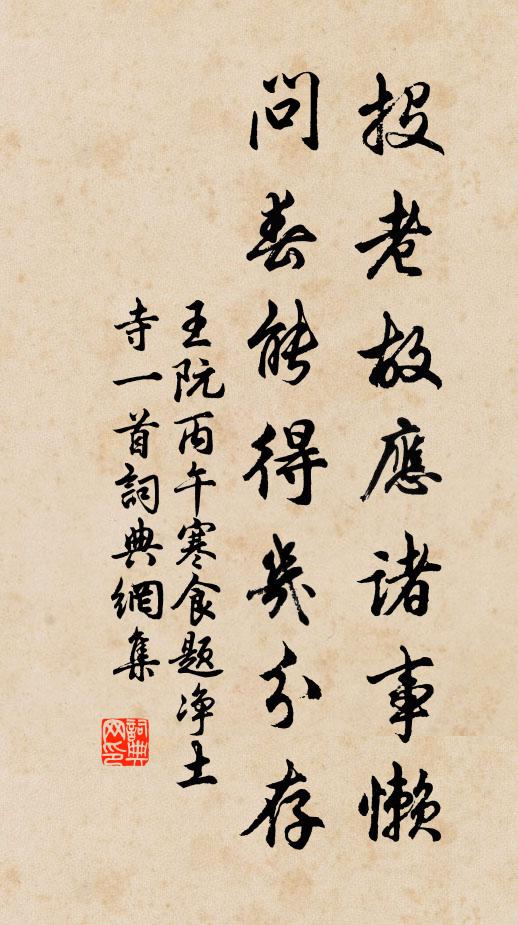 投老故應諸事懶
問春能得幾分存
王阮丙午寒食題净土
寺一首詞典網集
詞典
网印